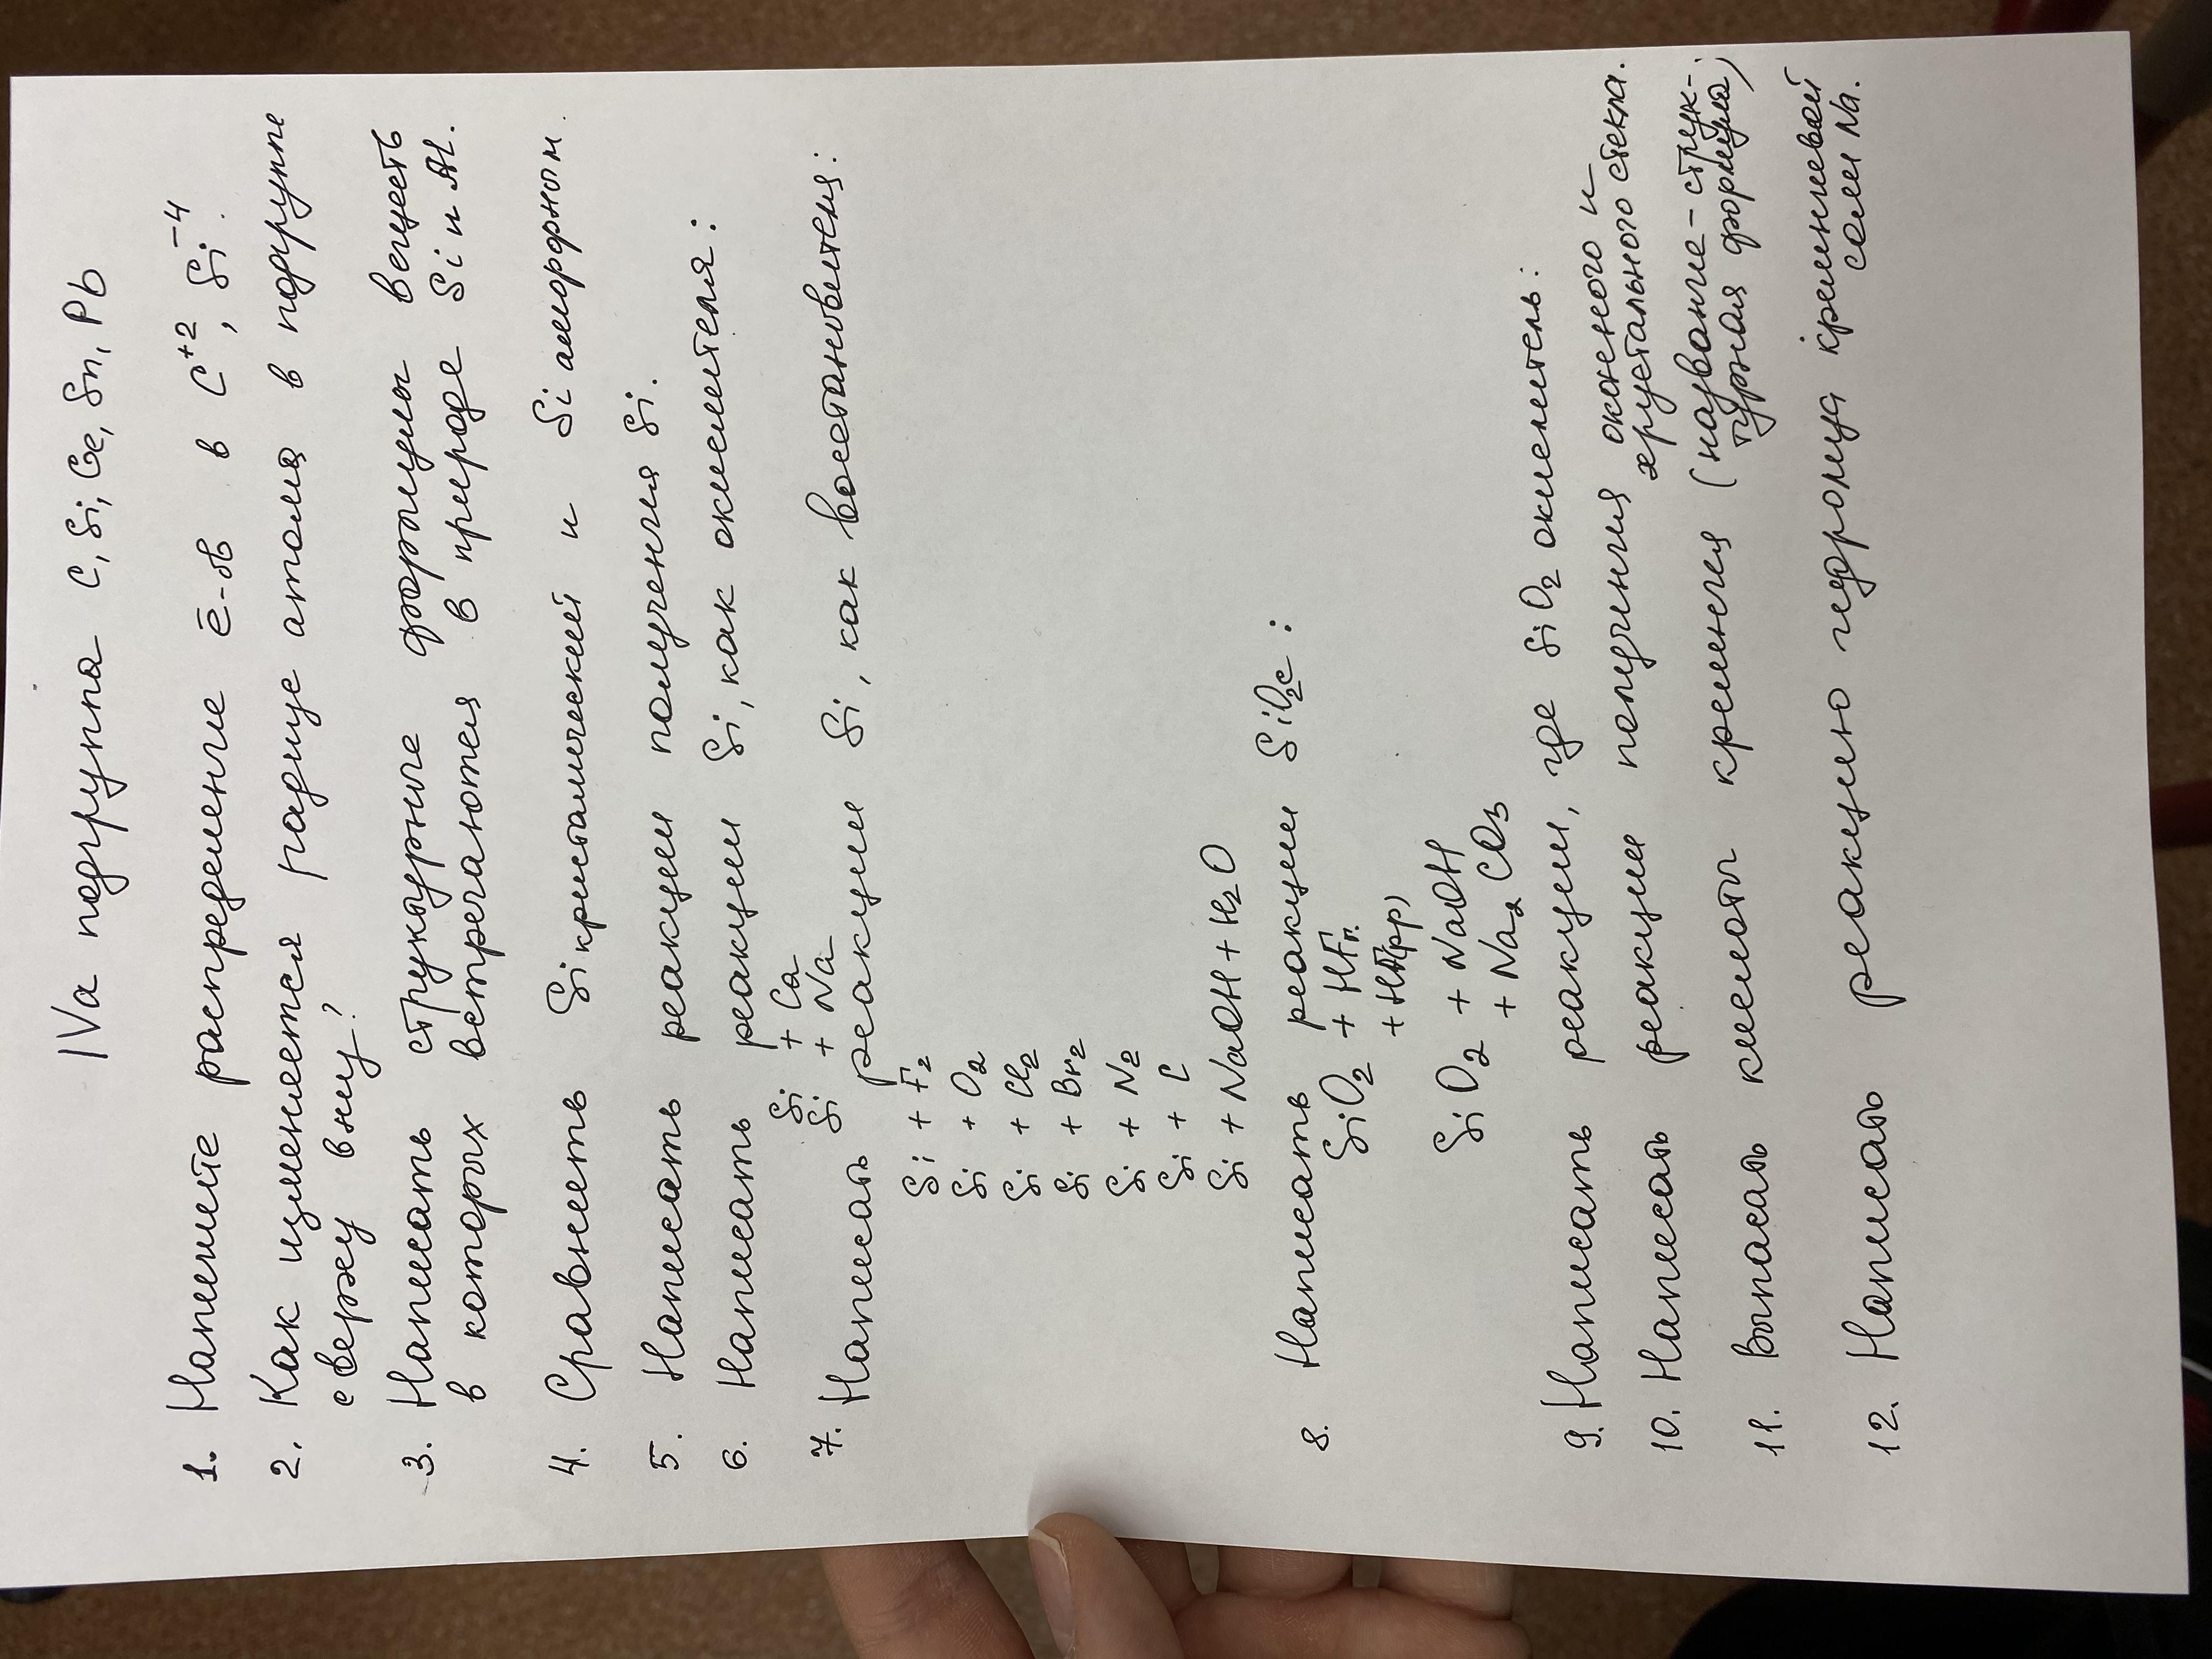 IVа подгруппа C, Si, Ge, Sn, Pb
1. Напишите распределение ē-ов в C⁺², Si⁻⁴.
2. Как изменяется радиус атома в подгруппе
сверху вниз?
3. Написать структурные формулы веществ
в которых встречаются в природе Si и Al.
4. Сравнить Si кристаллический и Si аморфном.
5. Написать реакции получения Si.
6. Написать реакции Si, как окислителя:
Si + Ca
Si + Na
7. Написать реакции Si, как восстановителя:
Si + F₂
Si + O₂
Si + Cl₂
Si + Br₂
Si + N₂
Si + C
Si + NaOH + H₂O
8. Написать реакции SiO₂ с:
SiO₂ + HFг.
+ HF(р)
SiO₂ + NaOH
+ Na₂CO₃
9. Написать реакции, где SiO₂ окислитель:
10. Написать реакции получения оконного и
хрустального стекла.
11. Выписать кислоты кремния (название-струк-
турная формула)
12. Написать реакцию гидролиза кремниевой
соли Na.